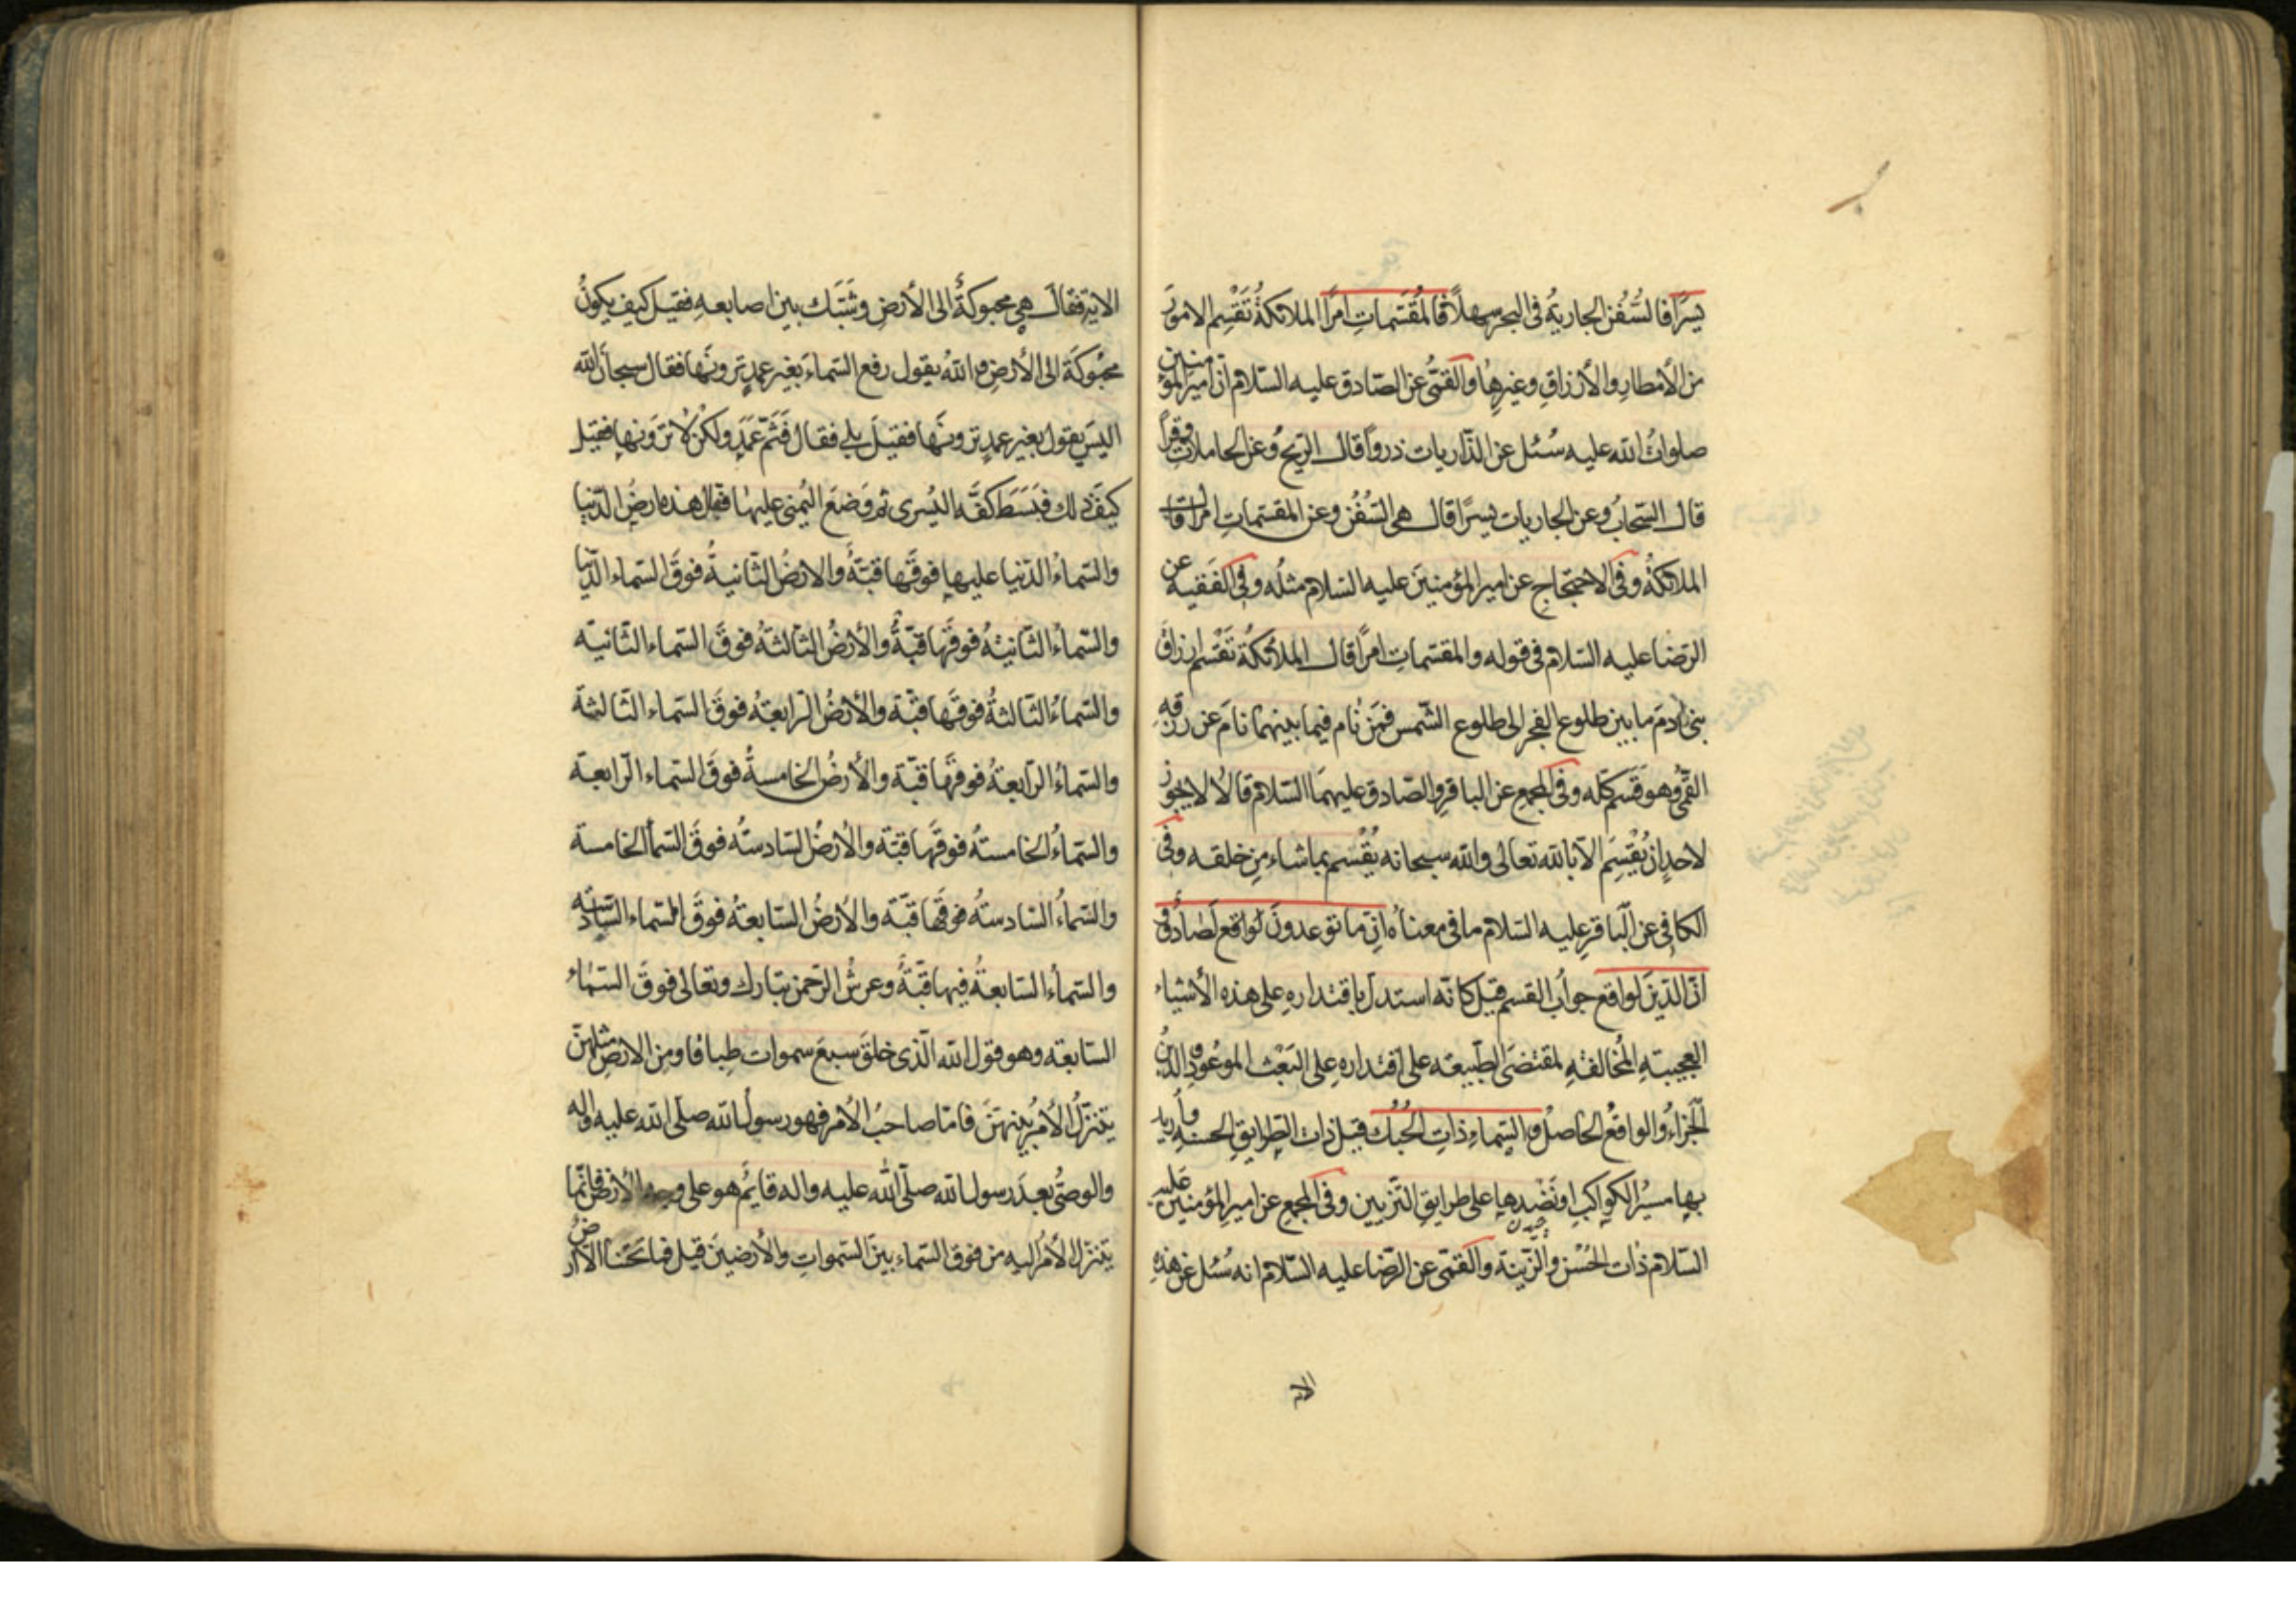 يُسرًا فالسُّفُن الجاريةُ فى البحر سهلاً فالمُقَسّماتِ امرًا الملائكةُ تَقْسِم الامورَ
من الأمطارِ والأرزاقِ وغيرِها والقمّىُّ عن الصّادق عليه السّلام انّ اميرالمؤمنين
صلواتُ الله عليه سُئل عن الذّاريات ذروًا قال الرّيح وعن الحاملاتِ وقرًا
قال السّحابُ وعن الجاريات يسرًا قال هى السُّفُن وعن المقسّماتِ امرًا قال
الملائكةُ وفى الاحتجاج عن اميرالمؤمنينَ عليه السّلام مثلُه وفى الفقيه عن
الرّضا عليه السّلام فى قوله والمقسّماتِ امرًا قال الملائكةُ تَقْسم ارزاقَ
بنى ادمَ ما بين طلوع الفجر الى طلوع الشّمس فمَن نام فيما بينهما نامَ عن رزقِه
القمّى وهو قَسَم كلّه وفى المجمع عن الباقرِ والصّادق عليهمَا السّلام قالا لا يجوز
لاحدٍ ان يُقْسِمَ الّا بالله تعالى والله سبحانه يُقْسم بما شاء مِن خلقه وفى
الكافى عن الباقرِ عليه السّلام ما فى معناه انّ ما توعدونَ لواقع لَصادق
انّ الدّينَ لواقع جوابُ القسم قيل كانّه استدلّ باقتداره على هذه الأشياء
العجيبةِ المُخالفةِ لمقتضَى الطّبيعه على اقتدارهِ على البَعْث الموعُودِ والدّينُ
الجَزاءُ والواقعُ الحاصلُ والسّماءِ ذاتِ الحُبُك قيل ذات الطّرايقِ الحسنه واُريد
بها مسيرُ الكواكبِ او نَضْدها على طرايقِ التّزيين وفى المجمع عن اميرالمؤمنين عليه
السّلام ذات الحُسْن والزّينة والقمّى عن الرّضا عليه السّلام انه سُئل عن هذه
الا
الاية فقال هى محبوكةٌ الى الأرضِ وشَبَّك بين اصابعهِ فقيل كيف يكونُ
محْبُوكَة الى الأرضِ والله يقول رفع السّماءَ بغير عمدٍ ترونَها فقال سبحان الله
اليسَ يقول بغير عمدٍ ترونَها فقيلَ بلى فقال فَثَمّ عَمَد ولكن لا ترَونها فقيل
كيفَ ذلك فبَسَط كفَّه اليُسرى ثم وضَعَ اليُمنى عليها فقال هذه ارضُ الدّنيا
والسّماءُ الدّنيا عليها فوقَها قبّةٌ والارضُ الثّانيةُ فوقَ السّماء الدّنيا
والسّماءُ الثّانيةُ فوقَها قبّةٌ والأرضُ الثّالثةُ فوقَ السّماء الثّانيه
والسّماءُ الثّالثةُ فوقَها قبّة والأرضُ الرّابعةُ فوقَ السّماء الثّالثة
والسّماءُ الرّابعةُ فوقَها قبّة والأرضُ الخامسةُ فوقَ السّماء الرّابعة
والسّماءُ الخامسةُ فوقَها قبّة والأرضُ السّادسةُ فوقَ السّماء الخامسة
والسّماءُ السّادسةُ فوقَها قبّة والأرضُ السّابعةُ فوقَ السّماء السّادسه
والسّماءُ السّابعةُ فيها قبّةٌ وعرشُ الرّحمن تبارك وتعالى فوقَ السّماء
السّابعة وهو قول الله الّذى خلقَ سبعَ سموات طِباقا ومِن الارضِ مثلهنّ
يتنزّلُ الأمرُ بينهنّ فامّا صاحبُ الأمر فهو رسول الله صلّى الله عليه واله
والوصىُّ بعدَ رسول الله صلّى الله عليه واله قايمٌ هو على وجه الأرض فانّما
يتنزّل الأمرُ اليه من فوق السّماء بين السّموات والأرضينَ قيل فما تَحْتنا الا ارضٌ